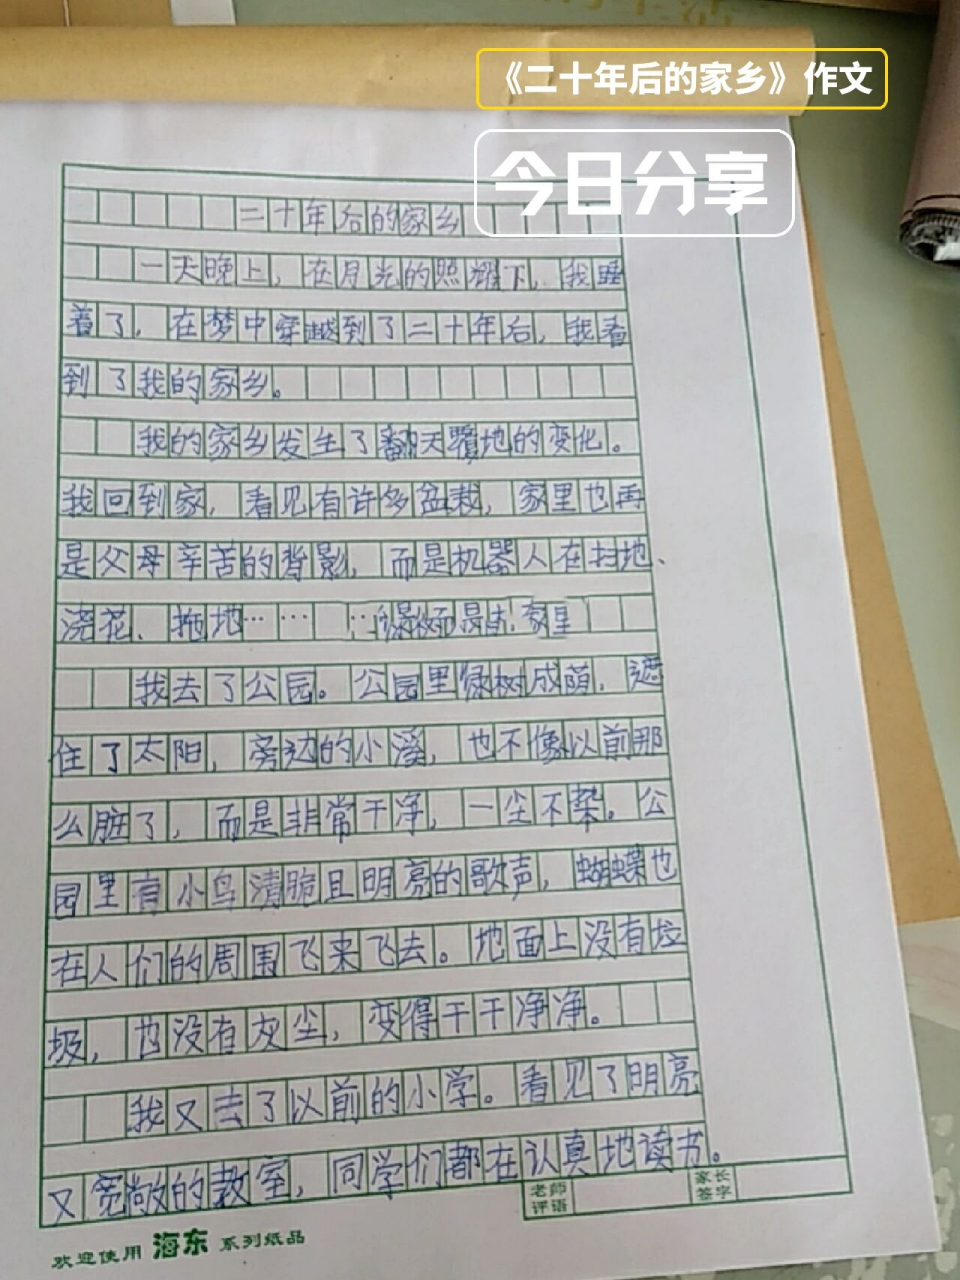 《二十年后的家乡》作文
今日分享
二十年后的家乡
一天晚上，在月光的照耀下，我睡
着了，在梦中穿越到了二十年后，我看
到了我的家乡。
我的家乡发生了翻天覆地的变化。
我回到家，看见有许多盆栽，家里也再
是父母辛苦的背影，而是机器人在扫地、
浇花、拖地……
我去了公园。公园里绿树成荫，遮
住了太阳，旁边的小溪，也不像以前那
么脏了，而是非常干净，一尘不染。公
园里有小鸟清脆且明亮的歌声，蝴蝶也
在人们的周围飞来飞去。地面上没有垃
圾，也没有灰尘，变得干干净净。
我又去了以前的小学。看见了明亮
又宽敞的教室，同学们都在认真地读书。
老师评语
家长签字
欢迎使用 海东 系列纸品